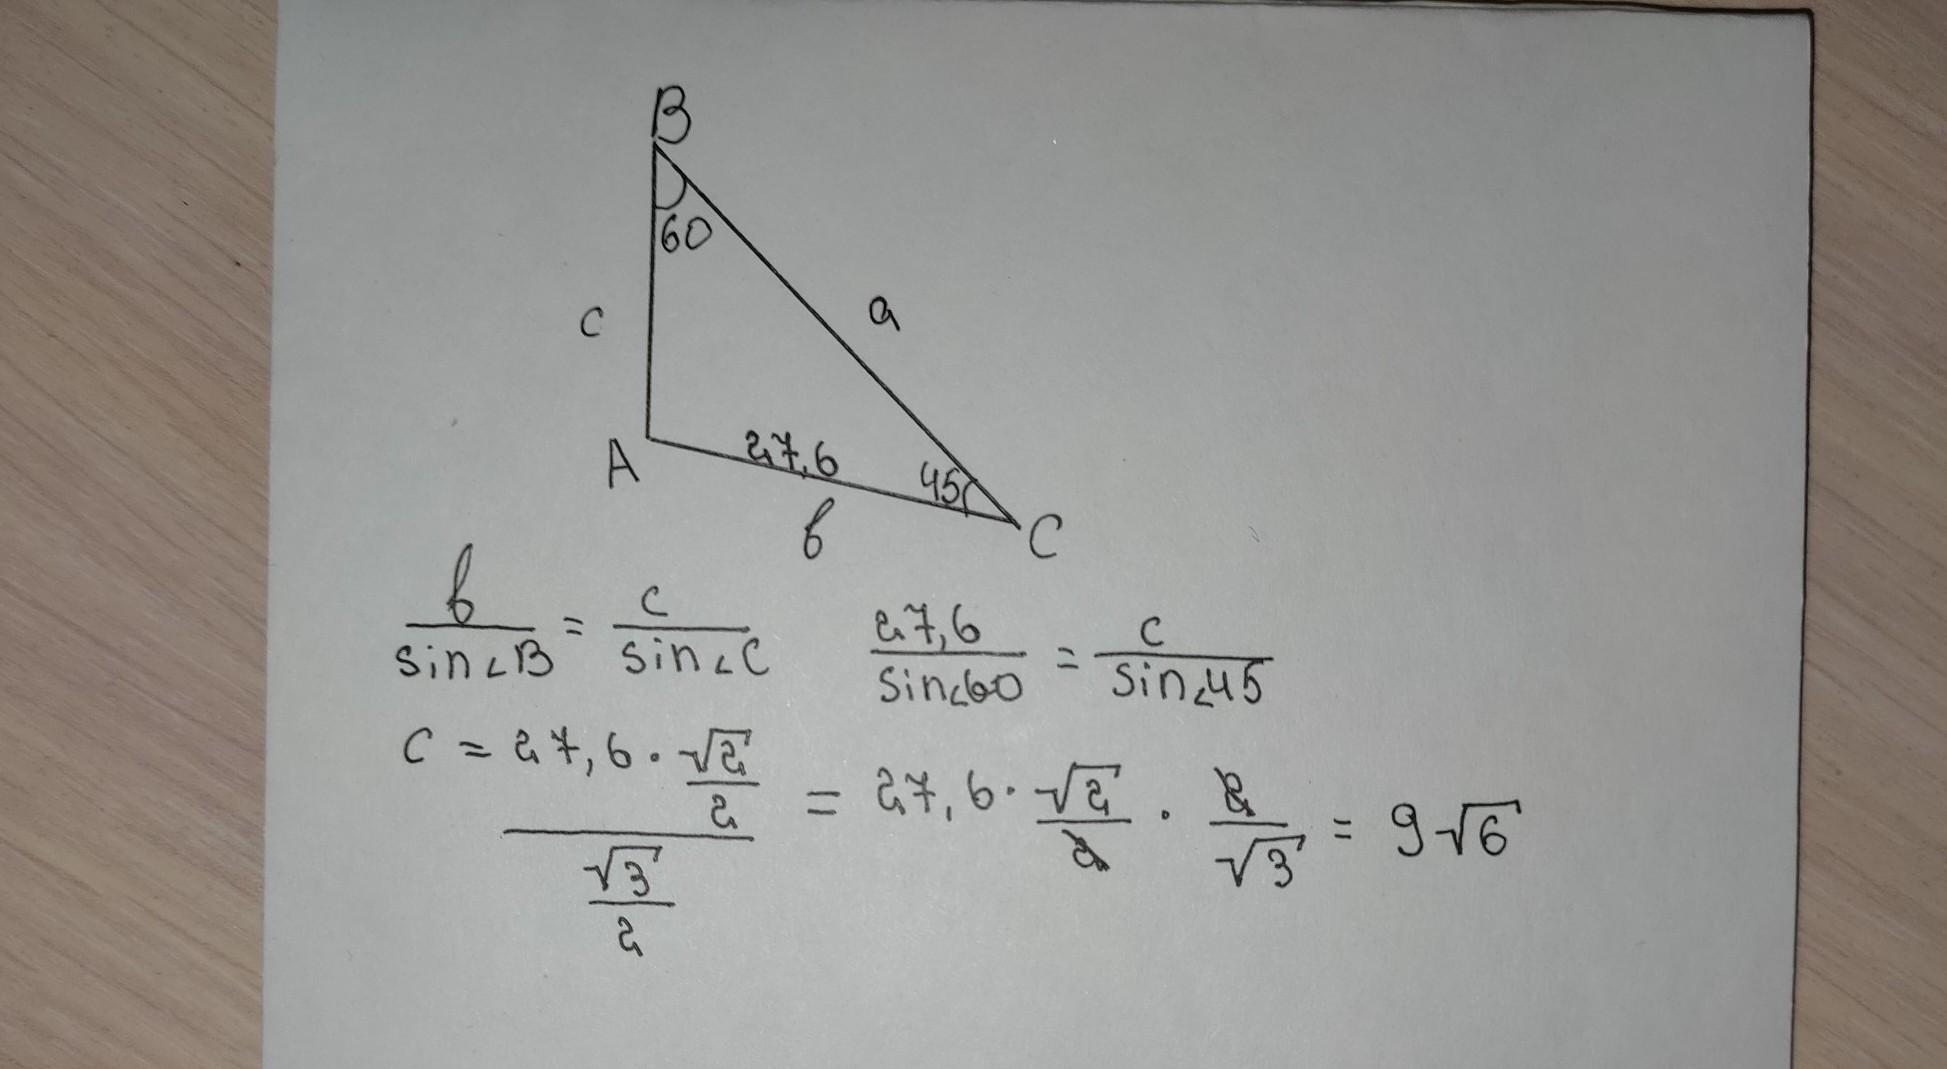 B
60
c
a
A
27,6
45
в
C
в/sin∠B = c/sin∠C
27,6/sin∠60 = c/sin∠45
C = (27,6 · √2/2)/(√3/2) = 27,6 · √2/2 · 2/√3 = 9√6